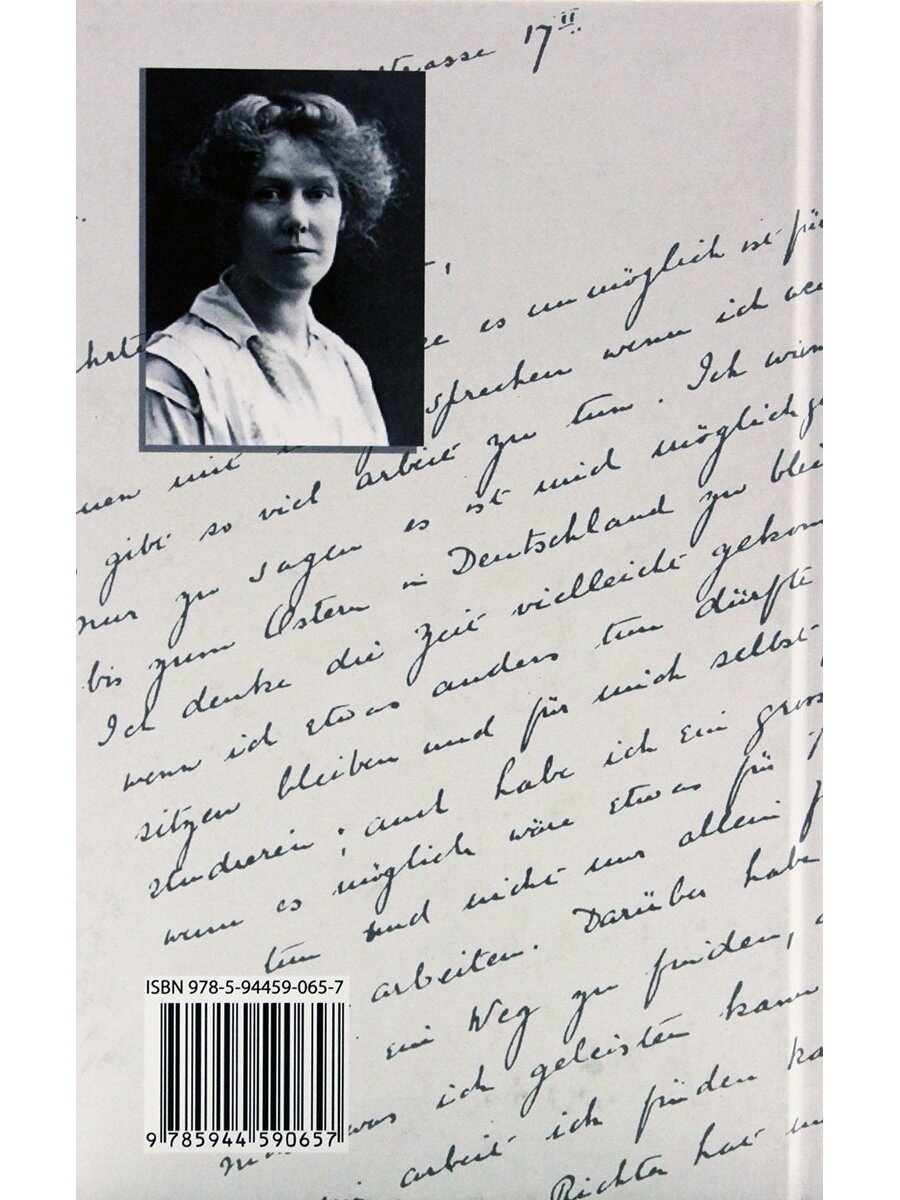 strasse 17 II
es unmöglich ist für
sprechen wenn ich
nen mit
gibt so viel arbeit zu tun. Ich
nur zu sagen es ist mid möglich
bis zum Ostern in Deutschland zu blei
Ich denke die Zeit vielleicht gekom
wenn ich etwas anders tun dürfte
sitzen bleiben und für mich selbst
studieren; auch habe ich ein gross
wenn es möglich wäre etwas für
tun und nicht nur allein
arbeiten. Darüber habe
ein Weg zu finden,
was ich geleisten kann
arbeit ich finden ka
Richter hat
ISBN 978-5-94459-065-7
9 785944 590657